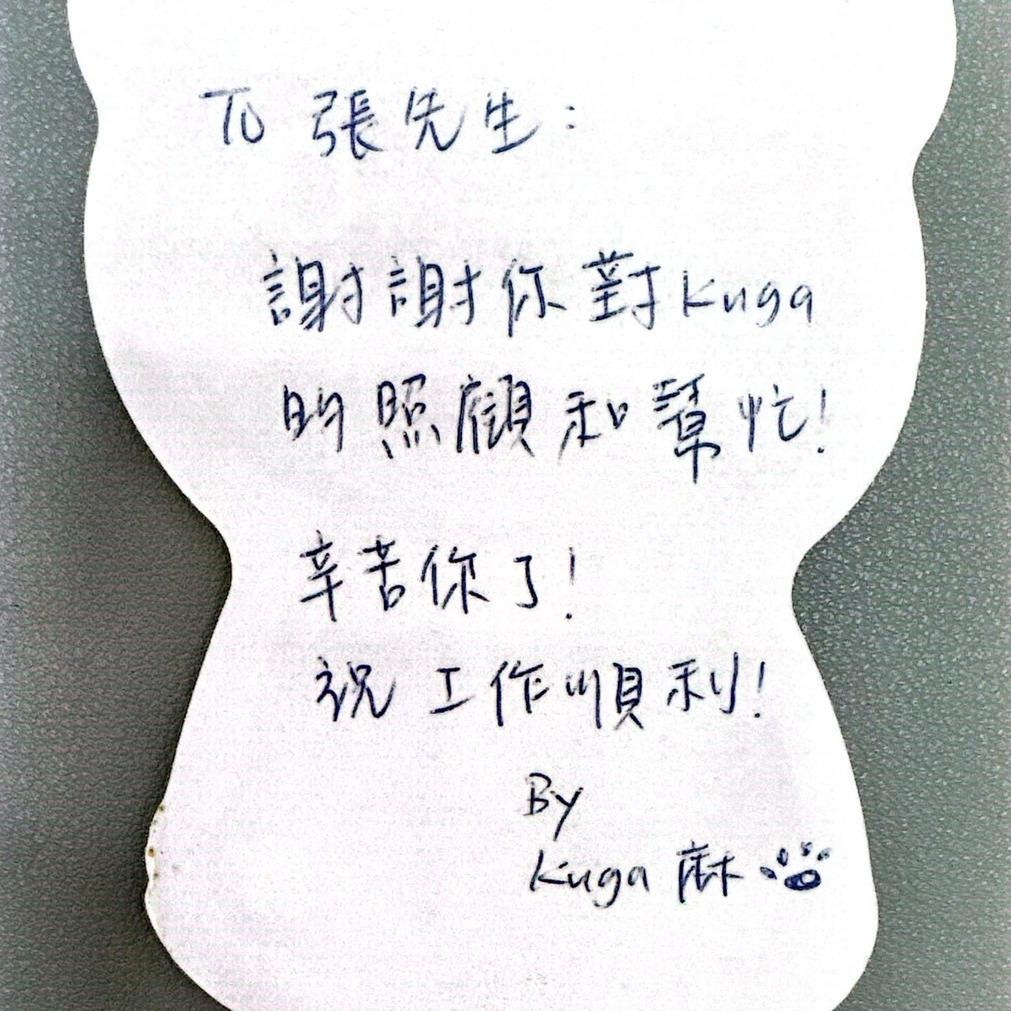 To 張先生:
謝謝你對Kuga
的照顧和幫忙!
辛苦你了!
祝 工作順利!
By
Kuga 麻